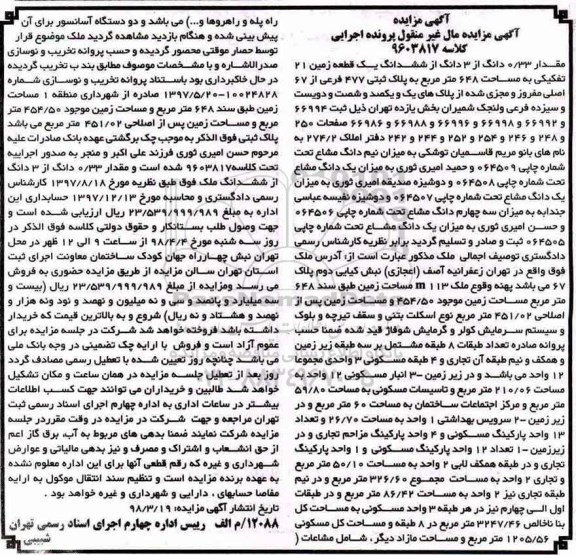 آگهی مزایده
آگهی مزایده مال غیر منقول پرونده اجرایی
کلاسه ۹۶۰۳۸۱۷
مقـدار ۰/۳۳ دانگ از ۳ دانگ از ششـدانگ یـک قطعه زمین ۲۱
تفکیکی به مسـاحت ۶۴۸ متر مربع به پلاک ثبتی ۴۷۷ فرعی از ۶۷
اصلی مفروز و مجزی شده از پلاک های یک و یکصد و شصت و دویست
و سیزده فرعی ولنجک شمیران بخش یازده تهران ذیل ثبت ۶۶۹۹۴
و ۶۶۹۹۲ و ۶۶۹۹۸ و ۶۶۹۹۶ و ۶۶۹۸۸ و ۶۶۹۸۶ صفحات ۲۵۰
و ۲۴۸ و ۲۴۶ و ۲۵۴ و ۲۵۲ و ۲۴۴ و ۲۴۲ دفتر املاک ۲۷۴/۲ به
نام های بانو مریم قاسـمیان توشکی به میزان نیم دانگ مشاع تحت
شماره چاپی ۰۶۴۵۰۹ و حمید امیری ثوری به میزان یک دانگ مشاع
تحت شماره چاپی ۰۶۴۵۰۸ و دوشیزه صدیقه امیری ثوری به میزان
یک دانگ مشاع تحت شماره چاپی ۰۶۴۵۰۷ و دوشیزه نفیسه عباسی
جندابه به میزان سه چهارم دانگ مشاع تحت شماره چاپی ۰۶۴۵۰۶
و حسـن امیری ثوری به میزان یک دانگ مشـاع تحت شماره چاپی
۰۶۴۵۰۵ ثبت و صادر و تسلیم گردید برابر نظریه کارشناس رسمی
دادگستری توصیف اجمالی ملک مذکور عبارت است از: آدرس ملک
فوق واقع در تهران زعفرانیه آصف (اعجازی) نبش کیایی دوم پلاک
۶۷ می باشد پهنه وقوع ملک m۱۱۳ مساحت زمین طبق سند ۶۴۸
متر مربع مساحت زمین موجود ۴۵۴/۵۰ و مسـاحت زمین پس از
اصلاحی ۴۵۱/۰۲ متر مربع نوع اسـکلت بتنی و سـقف تیرچه و بلوک
و سیستم سـرمایش کولر و گرمایش شوفاژ قید شده ضمنا حسب
پروانه صادره تعداد طبقات ۸ طبقه مشـتمل بر سـه طبقه زیر زمین
و همکف و نیم طبقه آن تجاری و ۴ طبقه مسـکونی ۳ واحدی مجموعا
۱۲ واحد می باشـد و در زیر زمین ۳- انبار مسـکونی ۱۲ واحد به
مساحت ۲۱۰/۰۶ متر مربع و تاسیسات مسکونی به مساحت ۵۹/۸۰
متر مربع و مرکز اجتماعات سـاختمان به مساحت ۶۰ متر مربع و در
زیر زمین ۲- سرویس بهداشتی ۱ واحد به مساحت ۲۶/۷۰ و تعداد
۱۳ واحد پارکینگ مسـکونی و ۴ واحد پارکینگ مزاحم تجاری و در
زیرزمین ۱- تعداد ۱۲ واحد پارکینگ مسـکونی و ۱ واحد پارکینگ
تجاری و در طبقه همکف لابی ۲ واحد به مساحت ۵۰/۱۰ متر مربع
و تجاری ۲ واحد به مساحت مجموع ۳۲۶/۶۰ متر مربع و در نیم
طبقه تجاری نیز ۲ واحد به مسـاحت ۸۶/۴۲ متر مربع و در طبقات
اول الـی چهارم نیز در هر طبقه ۳ واحد مسـکونی به مسـاحت کل
بنا ناخالص ۳۲۴۷/۴۶ متر مربع در ۸ طبقه و مساحت کل مسکونی
۱۲۰۵/۵۶ متر مربع و مسـاحت مازاد دیگر ، شـامل مشـاعات (
راه پله و راهروها و...) می باشد و دو دستگاه آسانسور برای آن
پیش بینی شده و هنگام بازدید مشاهده گردید ملک موضوع قرار
توسط حصار موقتی محصور گردیده و حسب پروانه تخریب و نوسازی
صدرالاشاره و با مشخصات موصوف مطابق بند ب تخریب گردیده
در حال خاکبرداری بود باستناد پروانه تخریب و نوسازی شماره
۱۰۰۲۴۸۲۸-۱۳۹۷/۵/۲۰ صادره از شهرداری منطقه ۱ مساحت
زمین طبق سند ۶۴۸ متر مربع و مساحت زمین موجود ۴۵۴/۵۰ متر
مربع و مساحت زمین پس از اصلاحی ۴۵۱/۰۲ متر مربع می باشد
پلاک ثبتی فوق الذکر به موجب چک برگشتی عهده بانک صادرات علیه
مرحوم حسن امیری ثوری فرزند علی اکبر و منجر به صدور اجراییه
تحت کلاسه ۹۶۰۳۸۱۷ شده است و مقدار ۰/۳۳ دانگ از ۳ دانگ
از شـش دانـگ ملک فوق طبق نظریه مورخ ۱۳۹۷/۸/۱۸ کارشناس
رسمی دادگستری و محاسبه مورخ ۱۳۹۷/۱۲/۱۳ حسابداری این
اداره به مبلغ ۲۳/۵۳۹/۹۹۹/۹۸۹ ریال ارزیابی شـده اسـت و
جهت وصول طلب بسـتانکار و حقوق دولتی کلاسه فوق الذکر در
روز سـه شنبه مورخ ۹۸/۴/۴ از ساعت ۹ الی ۱۲ ظهر در محل
تهران نبش چهارراه جهان کودک سـاختمان معاونت اجرای ثبت
استـان تهران سـالن مزایده از طریق مزایده حضوری به فروش
می رسـد ومزایده از مبلغ ۲۳/۵۳۹/۹۹۹/۹۸۹ ریال (بیست و
سه میلیارد و پانصد و سی و نه میلیون و نهصد و نود ونه هزار و
نهصد و هشـتاد و نه ریال) شروع و به بالاترین قیمت که خریدار
داشـته باشد فروخته خواهد شد شـرکت در جلسه مزایده برای
عموم آزاد است و فروش با ارایه چک تضمینی در وجه بانک ملی
می باشد چنانچه روز تعیین شـده با تعطیل رسمی مصادف گردد
روز بعد از تعطیل جلسـه مزایده در همان ساعت و مکان تشکیل
خواهد شـد طالبین و خریداران می توانند جهت کسـب اطلاعات
بیشـتر در ساعات اداری به اداره چهارم اجرای اسناد رسمی ثبت
تهران مراجعه و جهت شـرکت در مزایده در وقت مقرردر جلسه
مزایده شرکت نمایند ضمنا بدهی های مربوط به آب، برق گاز اعم
از حق انشـعاب و اشتراک و مصرف و نیز بدهی مالیاتی و عوارض
شـهرداری و غیره که رقم قطعی آنها برای این اداره معلوم نشده
به عهده برنده مزایده است و تنظیم سند انتقال موکول به ارایه
مفاصا حسابهای ، دارایی و شهرداری و غیره خواهد بود .
تاریخ انتشار آگهی مزایده: ۹۸/۳/۱۹
۱۲۰۸۸/م الف رییس اداره چهارم اجرای اسناد رسمی تهران
شبیبی